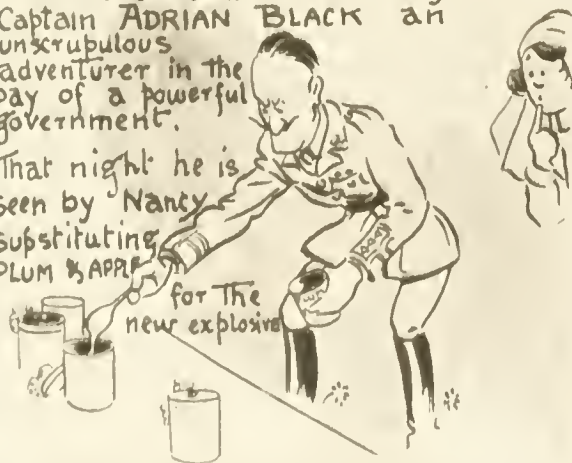 Captain ADRIAN BLACK an
unscrupulous
adventurer in the
pay of a powerful
government.
That night he is
seen by Nancy
substituting
PLUM & APPLE
for The
new explosive